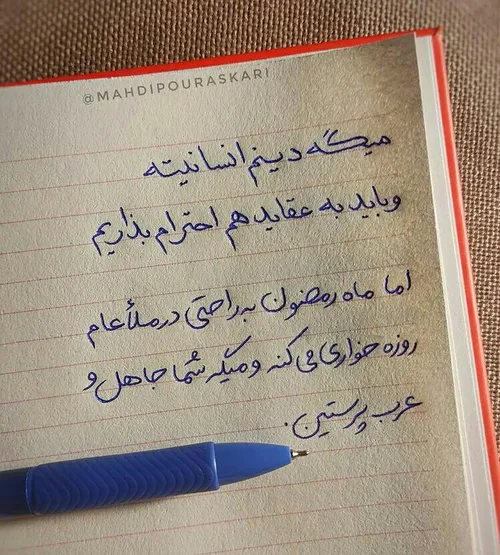 @MAHDIPOURASKARI
میگه دینم انسانیته
و باید به عقاید هم احترام بذاریم
اما ماه رمضون به راحتی در ملأ عام
روزه خواری می کنه و میگه شما جاهل و
عرب پرستین.